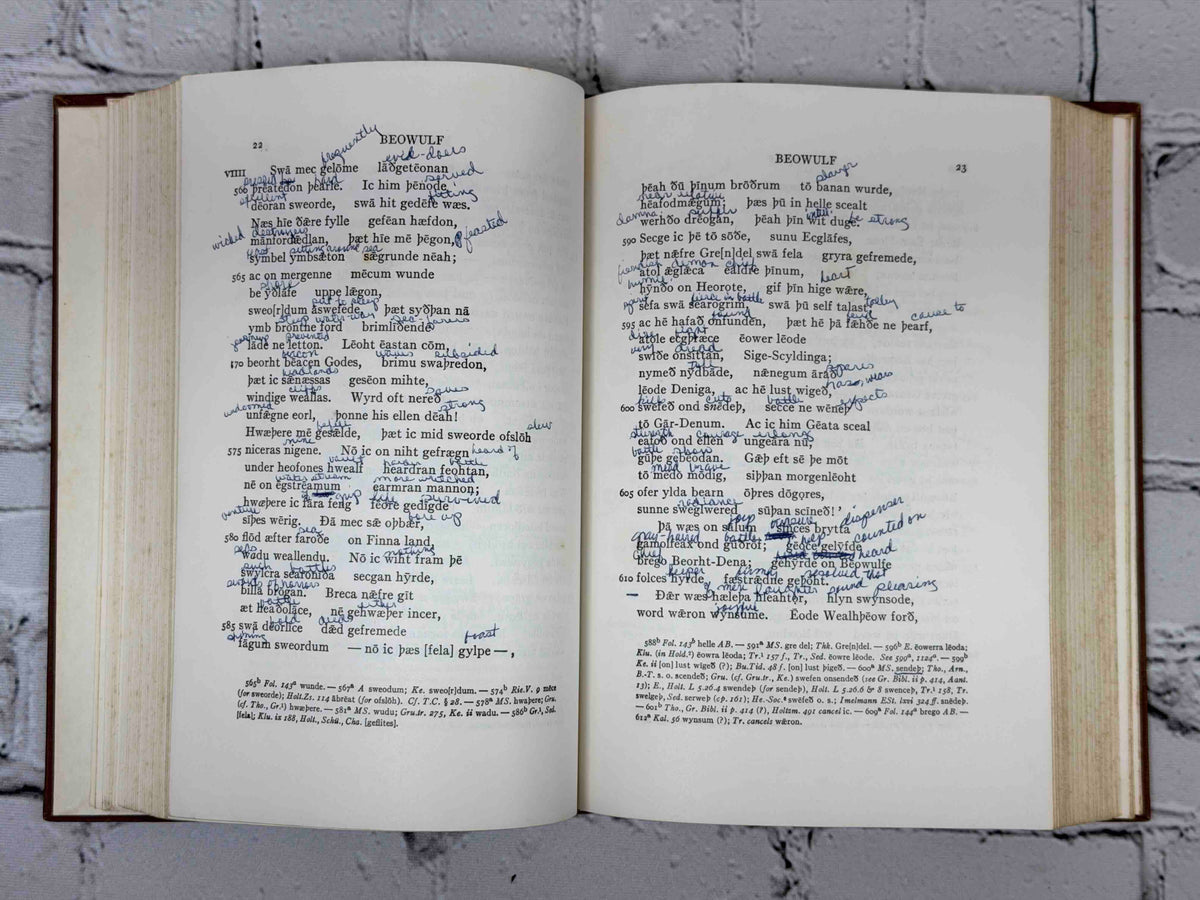 22 BEOWULF
frequently evil-doers
VIIII Swā mec gelōme lāðgetēonan
pressed hard served
560 þrēatedon þearle. Ic him þēnode
excellent fitting
dēoran sweorde, swā hit gedēfe wæs.
Næs hīe ðǣre fylle gefēan hæfdon,
wicked destroyers feasted
mānfordǣdlan, þæt hīe mē þēgon,
feast sitting around sea
symbel ymbsǣton sǣgrunde nēah;
565 ac on mergenne mēcum wunde
shore
be ȳðlāfe uppe lǣgon,
put to sleep
sweo[r]dum āswefede, þæt syðþan nā
steep water-way sea-farers
ymb brontne ford brimlīðende
prevented
lāde ne letton. Lēoht ēastan cōm,
beacon waves subsided
570 beorht bēacen Godes, brimu swaþredon,
headlands
þæt ic sǣnæssas gesēon mihte,
cliffs saves
windige weallas. Wyrd oft nereð
undoomed strong
unfǣgne eorl, þonne his ellen dēah!
befell slew
Hwæþere mē gesǣlde, þæt ic mid sweorde ofslōh
nine heard of
575 niceras nigene. Nō ic on niht gefrægn
vault harder battle
under heofones hwealf heardran feohtan,
water-stream more wretched
nē on ēgstrēamum earmran mannon;
grip life survived
hwæþere ic fāra feng fēore gedīgde
venture bore up
sīþes wērig. Ðā mec sǣ oþbær,
sea
580 flōd æfter faroðe on Finna land,
seas nothing
wadu weallendu. Nō ic wiht fram þē
such battles
swylcra searonīða secgan hȳrde,
swords of horrors
billa brōgan. Breca nǣfre gīt
battle either
æt heaðolāce, nē gehwæþer incer,
bold deeds
585 swā dēorlīce dǣd gefremede
shining boast
fāgum sweordum — nō ic þæs [fela] gylpe —,
565ᵇ Fol. 143ᵃ wunde. — 567ᵃ A sweodum; Ke. sweo[r]dum. — 574ᵇ Rie.V. 9 mēce
(for sweorde); Holt.Zs. 114 ābrēat (for ofslōh). Cf. T.C. § 28. — 578ᵃ MS. hwaþere; Gru.
(cf. Tho., Gr.¹) hwæþere. — 581ᵃ MS. wudu; Gru.tr. 275, Ke. ii wadu. — 586ᵇ Gr.¹, Sed.
[fela]; Klu. ix 188, Holt., Schü., Cha. [geflites].
BEOWULF 23
slayer
þēah ðū þīnum brōðrum tō banan wurde,
near relative
hēafodmǣgum; þæs þū in helle scealt
suffer be strong
werhðo drēogan, þēah þīn wit duge.
590 Secge ic þē tō sōðe, sunu Ecglāfes,
þæt nǣfre Gre[n]del swā fela gryra gefremede,
demon chief
atol ǣglǣca ealdre þīnum,
heart
hȳnðo on Heorote, gif þīn hige wǣre,
fierce in battle
sefa swā searogrim, swā þū self talast;
found feud cause to
595 ac hē hafað onfunden, þæt hē þā fǣhðe ne þearf,
dire
atole ecgþræce ēower lēode
very dread
swīðe onsittan, Sige-Scyldinga;
toll spares
nymeð nȳdbāde, nǣnegum ārað
lēode Deniga, ac hē lust wigeð,
kills cuts battle expects
600 swefeð ond snēdeþ, secce ne wēneþ
tō Gār-Denum. Ac ic him Gēata sceal
strength courage
eafoð ond ellen ungeāra nū,
battle show
gūþe gebēodan. Gǣþ eft sē þe mōt
mead brave
tō medo mōdig, siþþan morgenlēoht
605 ofer ylda bearn ōþres dōgores,
radiance
sunne sweglwered sūþan scīneð!’
joy dispenser
Þā wæs on sālum sinces brytta
gray-haired battle help counted on
gamolfeax ond gūðrōf; gēoce gelȳfde
chief heard
brego Beorht-Dena; gehȳrde on Bēowulfe
keeper firmly resolved that
610 folces hyrde fæstrǣdne geþōht.
of men laughter sound pleasing
Ðǣr wæs hæleþa hleahtor, hlyn swynsode,
joyful
word wǣron wynsume. Ēode Wealhþēow forð,
588ᵇ Fol. 143ᵇ helle AB. — 591ᵃ MS. gre del; Thk. Gre[n]del. — 596ᵇ E. ēowerra lēoda;
Klu. (in Hold.²) ēowra lēoda; Tr.¹ 157 f., Tr., Sed. ēowre lēode. See 599ᵃ, 1124ᵃ. — 599ᵇ
Ke. ii [on] lust wigeð (?); Bu.Tid. 48 f. [on] lust þigeð. — 600ᵃ MS. sendeþ; Tho., Arn.,
B.-T. s. o. scendeð; Gru. (cf. Gru.tr., Ke.) swefen onsendeð (see Gr. Bibl. ii p. 414, Aant.
13); E., Holt. L 5.26.4 swendeþ (for sendeþ), Holt. L 5.26.6 & 8 swenceþ, Tr.¹ 158, Tr.
swelgeþ, Sed. serweþ (cp. 161); He.-Soc.⁸ swēfeð o. s.; Imelmann ESt. lxvi 324 ff. snēdeþ.
— 601ᵇ Tho., Gr. Bibl. ii p. 414 (?), Holtzm. 491 cancel ic. — 609ᵃ Fol. 144ᵃ brego AB. —
612ᵃ Kal. 56 wynsum (?); Tr. cancels wǣron.